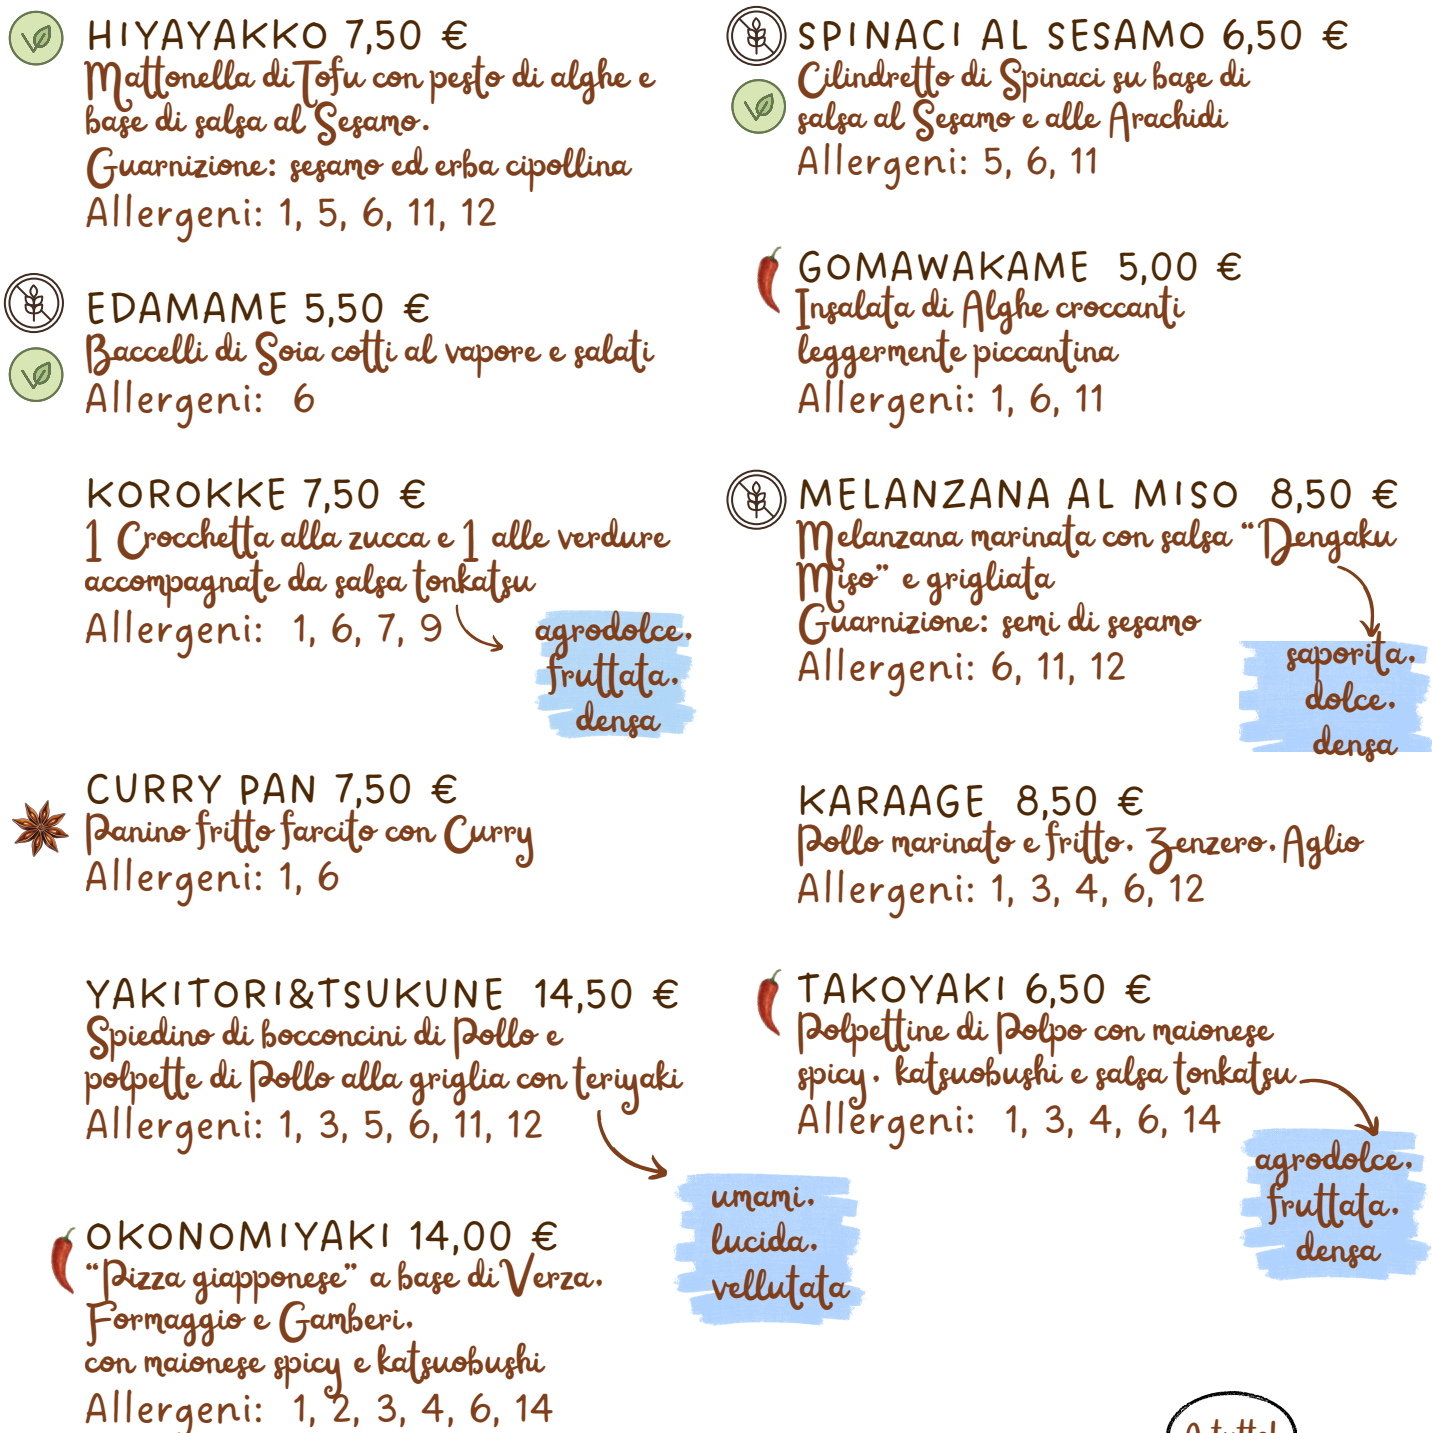 HIYAYAKKO 7,50 €
Mattonella di Tofu con pesto di alghe e
base di salsa al Sesamo.
Guarnizione: sesamo ed erba cipollina
Allergeni: 1, 5, 6, 11, 12
EDAMAME 5,50 €
Baccelli di Soia cotti al vapore e salati
Allergeni: 6
KOROKKE 7,50 €
1 Crocchetta alla zucca e 1 alle verdure
accompagnate da salsa tonkatsu
Allergeni: 1, 6, 7, 9
agrodolce,
fruttata,
densa
CURRY PAN 7,50 €
Panino fritto farcito con Curry
Allergeni: 1, 6
YAKITORI&TSUKUNE 14,50 €
Spiedino di bocconcini di Pollo e
polpette di Pollo alla griglia con teriyaki
Allergeni: 1, 3, 5, 6, 11, 12
umami,
lucida,
vellutata
OKONOMIYAKI 14,00 €
“Pizza giapponese” a base di Verza,
Formaggio e Gamberi,
con maionese spicy e katsuobushi
Allergeni: 1, 2, 3, 4, 6, 14
SPINACI AL SESAMO 6,50 €
Cilindretto di Spinaci su base di
salsa al Sesamo e alle Arachidi
Allergeni: 5, 6, 11
GOMAWAKAME 5,00 €
Insalata di Alghe croccanti
leggermente piccantina
Allergeni: 1, 6, 11
MELANZANA AL MISO 8,50 €
Melanzana marinata con salsa “Dengaku
Miso” e grigliata
Guarnizione: semi di sesamo
Allergeni: 6, 11, 12
saporita,
dolce,
densa
KARAAGE 8,50 €
Pollo marinato e fritto, Zenzero, Aglio
Allergeni: 1, 3, 4, 6, 12
TAKOYAKI 6,50 €
Polpettine di Polpo con maionese
spicy, katsuobushi e salsa tonkatsu
Allergeni: 1, 3, 4, 6, 14
agrodolce,
fruttata,
densa